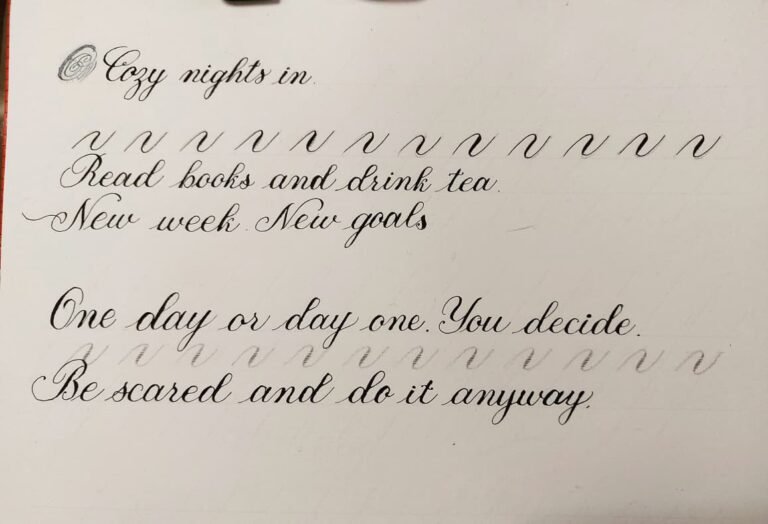 Cozy nights in.
Read books and drink tea.
New week. New goals
One day or day one. You decide.
Be scared and do it anyway.